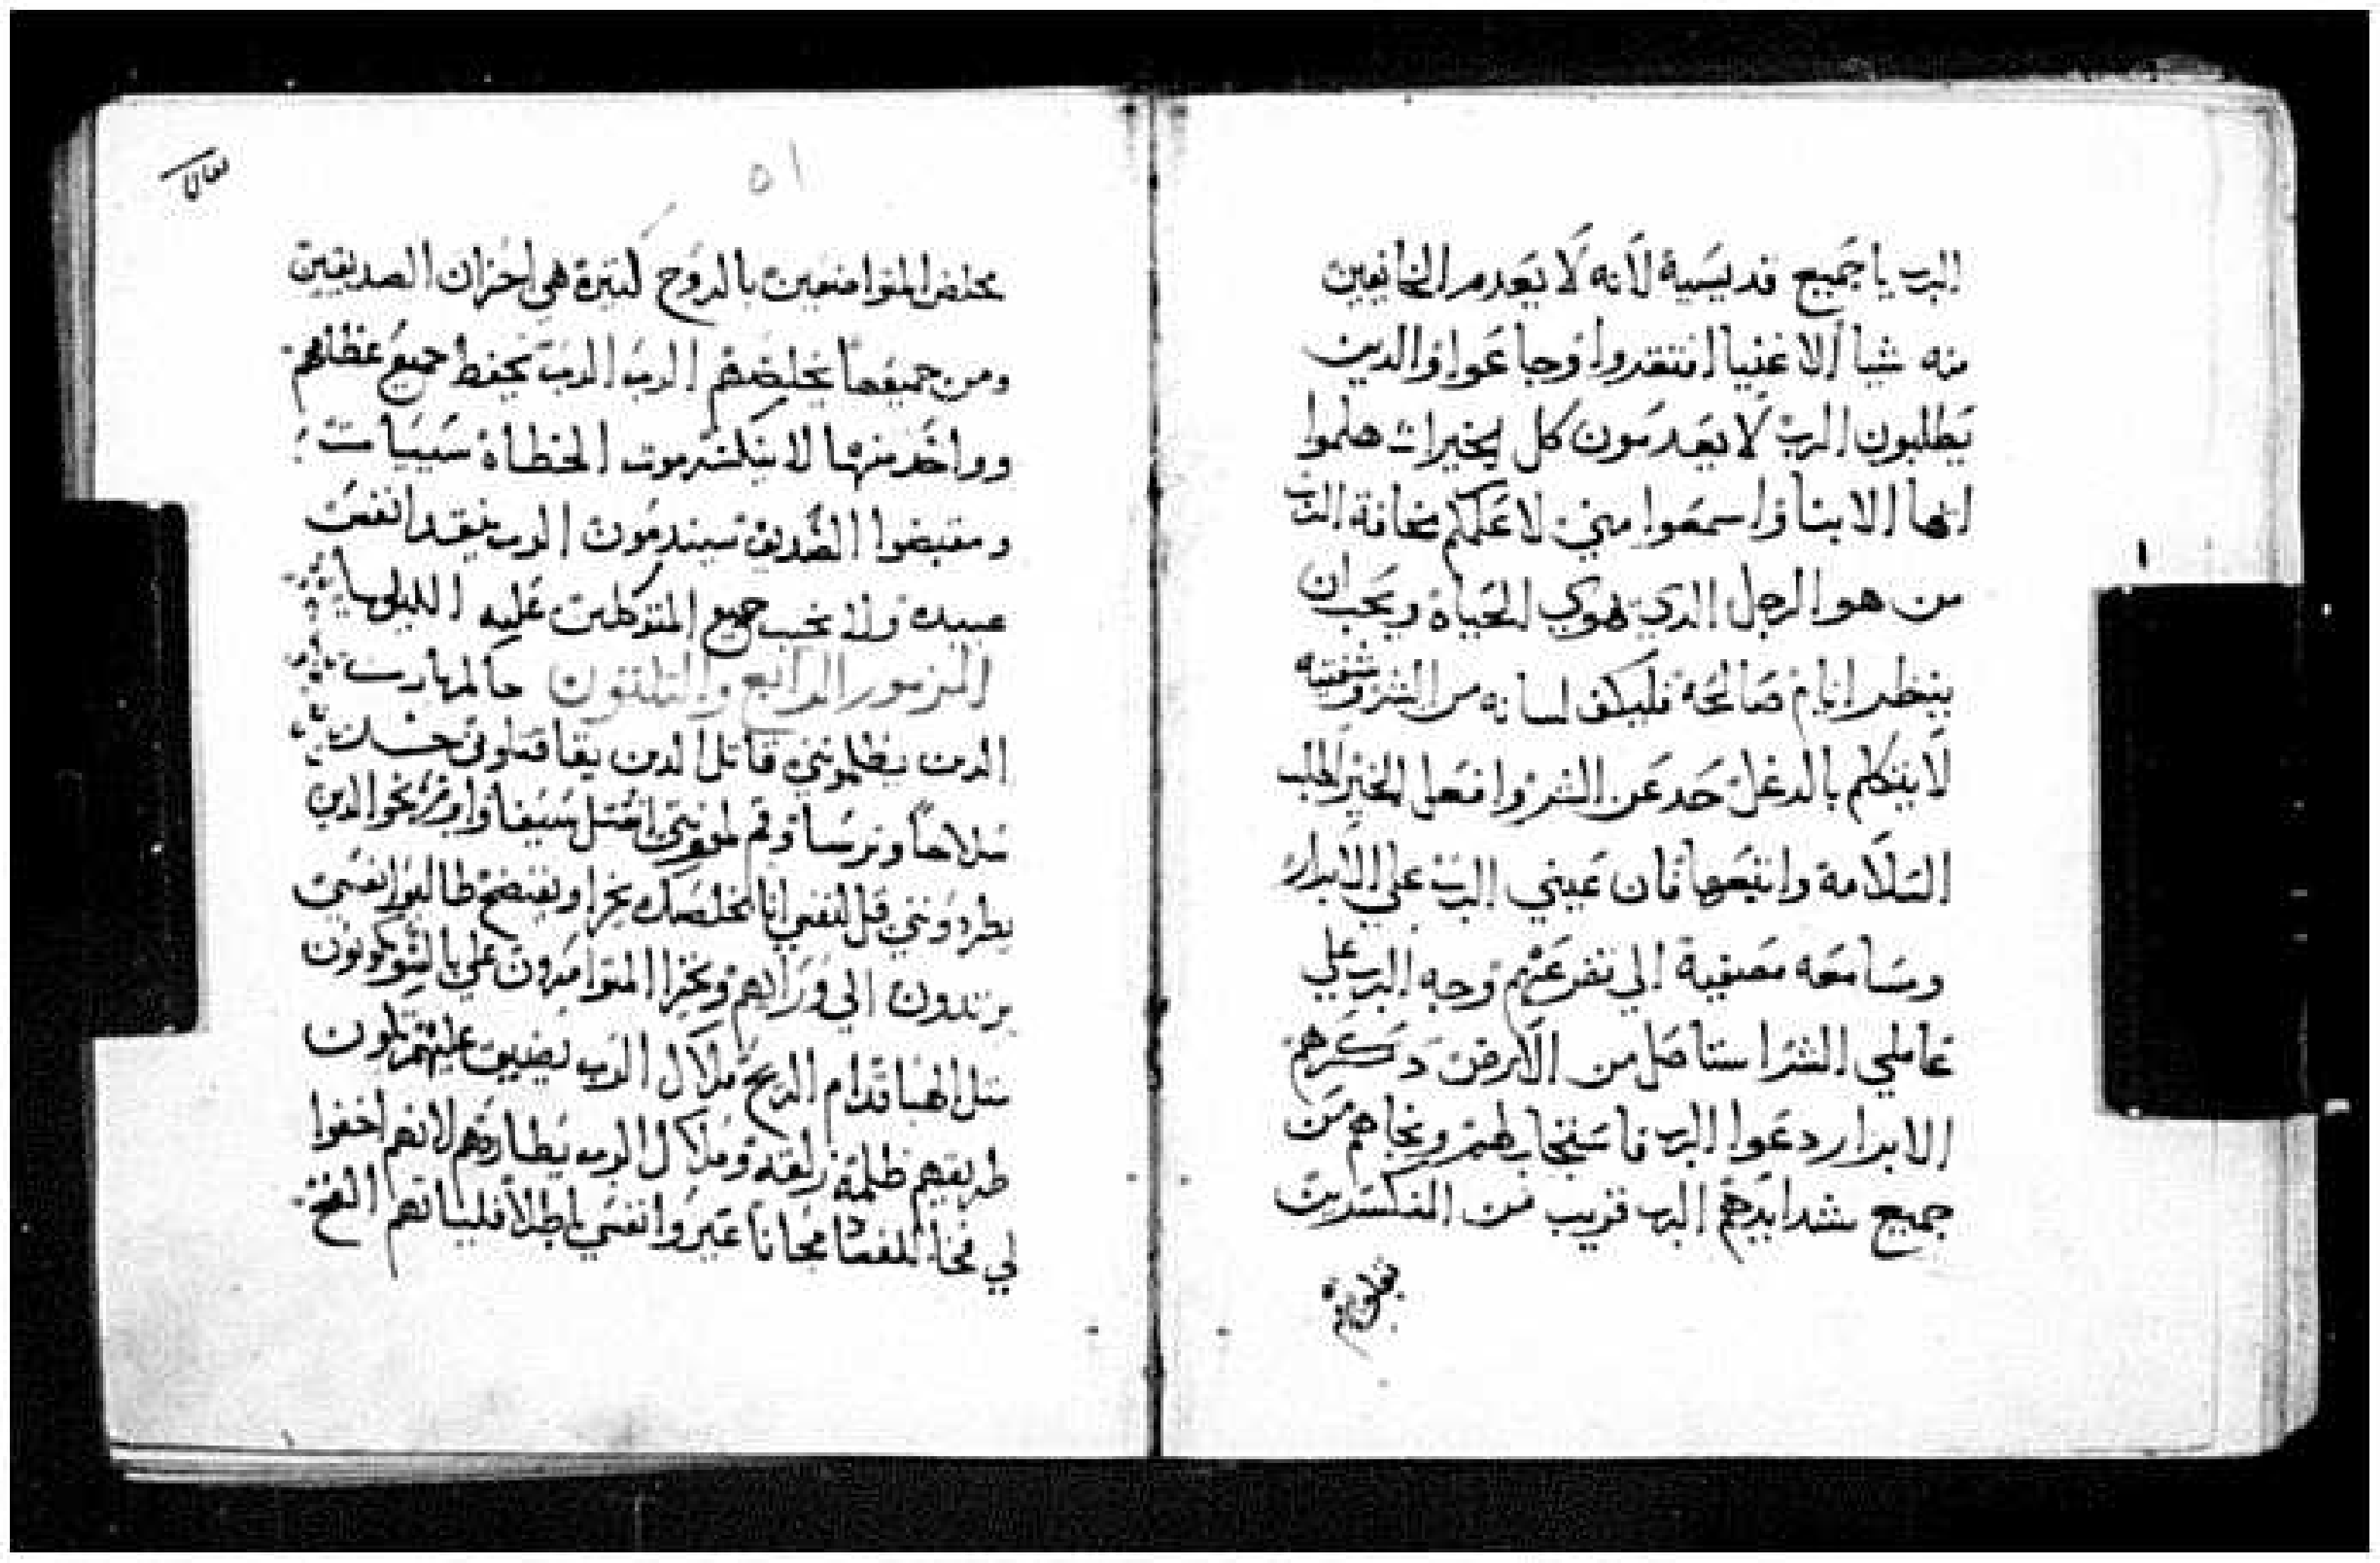 الرب يا جميع قديسية لانه لا يعدم الخايفين
منه شيا الاغنيا افتقروا وجاعوا والدين
يطلبون الرب لا يعدمون كل الخيرات هلموا
ايها الابنا واسمعوا مني لاعلمكم مخافة الرب
من هو الرجل الدي يهوي الحياة ويحب ان
ينظر اياما صالحة فليكف لسانه من الشر وشفتيه
لا يتكلم بالدغل حد عن الشر وافعل الخير اطلب
السلامة واتبعها فان عيني الرب علي الابرار
ومسامعه مصغية الي تضرعهم وجه الرب علي
عاملي الشر استاصل من الارض دكرهم
الابرار دعوا الرب فاستجاب لهم ونجاهم من
جميع شدايدهم الرب قريب من المنكسرين
٥١
مخلص المتواضعين بالروح كتيرة هي احزان الصديقين
ومن جميعها يخلصهم الرب الرب يحفظ جميع عظامهم
وواحد منها لا ينكسر موت الخطاة سييات
ومبغضوا الصديق سيندمون الرب ينقد انفس
عبيده ولا يخيب جميع المتوكلين عليه الليلويا
المزمور الرابع والتلتون حاكم يارب
الدين يظلموني قاتل الدين يقاتلوني خد
سلاحا وترسا وقم لمعونتي استل سيفا وابرز نحو الدين
يطردونني قل لنفسي انا مخلصك يخزا ويفتضح طالبوا نفسي
يرتدون الي ورايهم ويخزا المتوامرون علي بالشر يكونون
متل الهبا قدام الريح ملاك الرب يضيق عليهم تكون
طريقهم ظلمة زلقة وملاك الرب يطاردهم لانهم اخفوا
لي فخا لفسادا مجانا عيروا نفسي باطلا فلياتهم الفخ